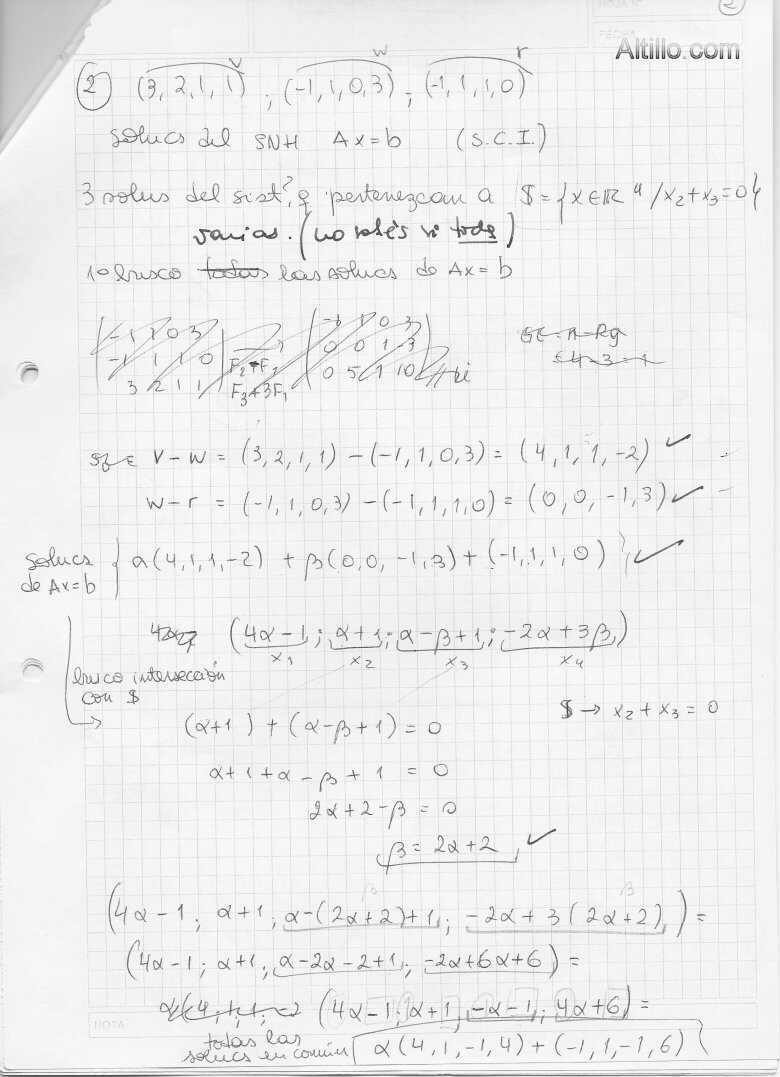 2
Altillo.com
v w r
② (3, 2, 1, 1) ; (-1, 1, 0, 3) ; (-1, 1, 1, 0)
solucs del SNH Ax = b (S.C.I.)
3 solucs del sist?, q pertenezcan a $ = {x ∈ ℝ⁴ / x₂ + x₃ = 0}
varias. (no sabés si toda)
1º busco todas las solucs de Ax = b
-1 1 0 3
-1 1 1 0
3 2 1 1
F₂-F₁
F₃+3F₁
-1 1 0 3
0 0 1 -3
0 5 1 10
v - w = (3, 2, 1, 1) - (-1, 1, 0, 3) = (4, 1, 1, -2) ✓
w - r = (-1, 1, 0, 3) - (-1, 1, 1, 0) = (0, 0, -1, 3) ✓
solucs de Ax=b { α(4, 1, 1, -2) + β(0, 0, -1, 3) + (-1, 1, 1, 0) } ✓
(4α-1 ; α+1 ; α-β+1 ; -2α+3β)
x₁ x₂ x₃ x₄
busco intersección
con $
$ → x₂ + x₃ = 0
(α+1) + (α-β+1) = 0
α+1+α-β+1 = 0
2α+2-β = 0
β = 2α+2 ✓
β β
(4α-1 ; α+1 ; α-(2α+2)+1 ; -2α+3(2α+2)) =
(4α-1 ; α+1 ; α-2α-2+1 ; -2α+6α+6) =
α(4, 1, 1, -2 (4α-1 ; α+1 ; -α-1 ; 4α+6) =
todas las
solucs en común { α(4, 1, -1, 4) + (-1, 1, -1, 6) }
NOTA